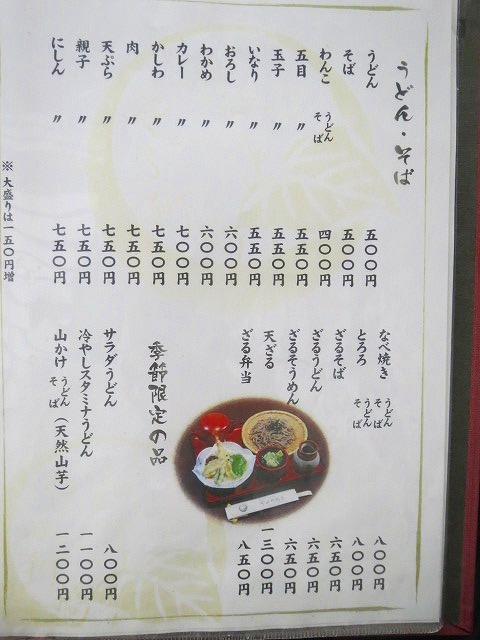 うどん・そば
うどん 五〇〇円
そば 五〇〇円
わんこ うどんそば 四〇〇円
五目 〃 五五〇円
玉子 〃 五五〇円
いなり 〃 五五〇円
おろし 〃 六〇〇円
わかめ 〃 六〇〇円
カレー 〃 七〇〇円
かしわ 〃 七五〇円
肉 〃 七五〇円
天ぷら 〃 七五〇円
親子 〃 七五〇円
にしん 〃 七五〇円
※大盛りは一五〇円増
なべ焼き うどんそば 八〇〇円
とろろ うどんそば 八〇〇円
ざるそば 六五〇円
ざるうどん 六五〇円
ざるそうめん 六五〇円
天ざる 一三〇〇円
ざる弁当 八五〇円
季節限定の品
サラダうどん 八〇〇円
冷やしスタミナうどん 一一〇〇円
山かけ うどんそば (天然山芋) 一二〇〇円